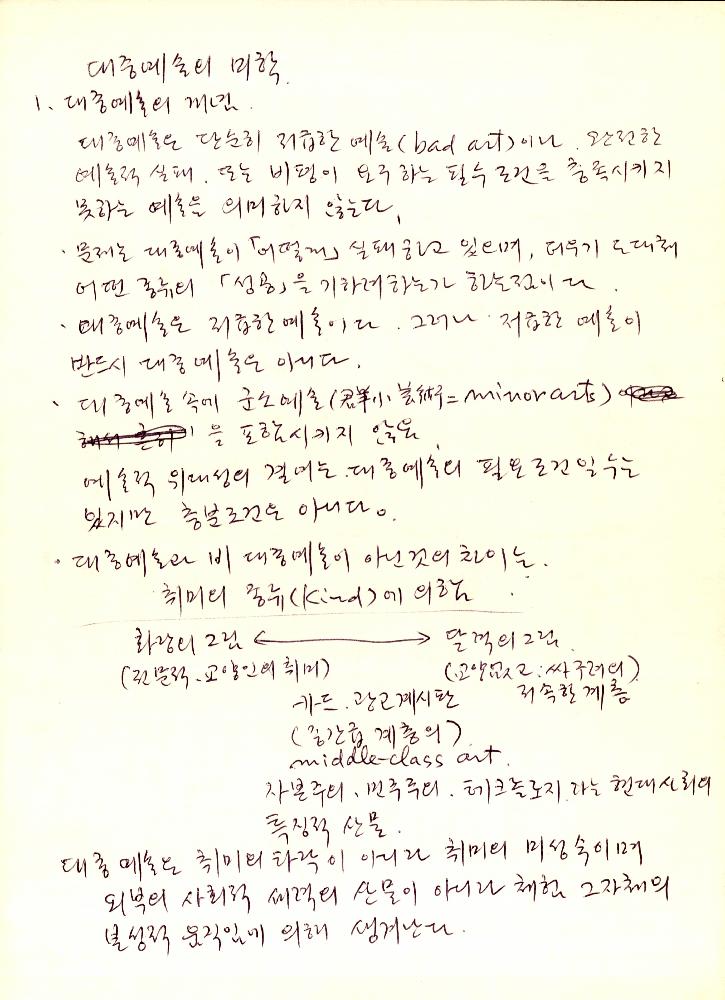 대중예술의 미학.
1. 대중예술의 개념.
대중예술은 단순히 저급한 예술(bad art)이나. 완전한
예술적 실패. 또는 비평이 요구하는 필수조건을 충족시키지
못하는 예술을 의미하지 않는다.
· 문제는 대중예술이 「어떻게」 실패하고 있으며, 더우기 도대체
어떤 종류의 「성공」을 기하려하는가 하는점이다.
· 대중예술은 저급한예술이다. 그러나 저급한 예술이
반드시 대중예술은 아니다.
· 대중예술 속에 군소예술(群小藝術=minor arts)
을 포함시키지 않음.
예술적 위대성의 결여는 대중예술의 필요조건일 수는
있지만 충분조건은 아니다.
· 대중예술과 비 대중예술이 아닌것의 차이는.
취미의 종류(kind)에 의함
화랑의 그림 ↔ 달력의 그림.
(전문적. 교양인의 취미) (교양없고: 싸구려의)
카드. 광고게시판 저속한 계층
(중간급 계층의)
middle-class art.
자본주의. 민주주의. 테크놀로지 라는 현대사회의
특징적 산물.
대중예술은 취미의 타락이 아니라 취미의 미성숙이며
외부의 사회적 세력의 산물이 아니라 체험 그자체의
본성적 움직임에 의해 생겨난다.